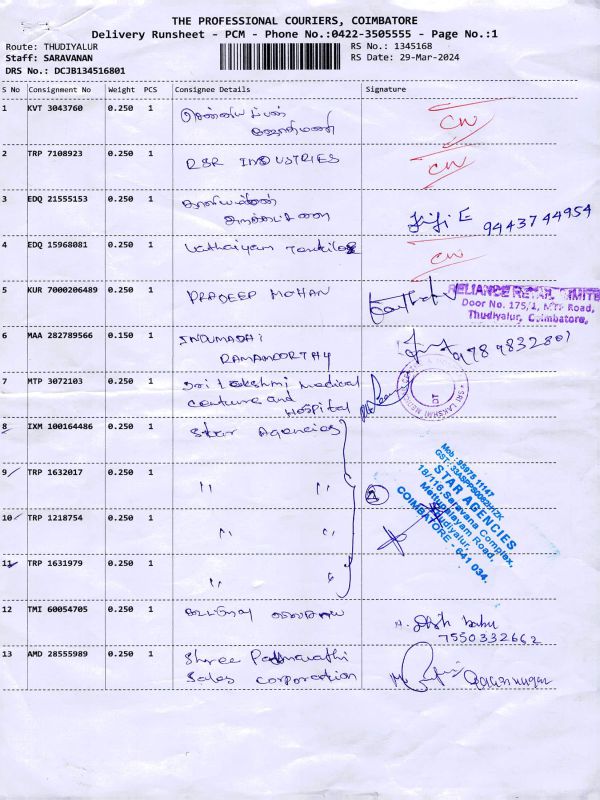 THE PROFESSIONAL COURIERS, COIMBATORE
Delivery Runsheet - PCM - Phone No.:0422-3505555 - Page No.:1
Route: THUDIYALUR
RS No.: 1345168
Staff: SARAVANAN
RS Date: 29-Mar-2024
DRS No.: DCJB134516801
S No Consignment No Weight PCS Consignee Details Signature
1 KVT 3043760 0.250 1
CN
2 TRP 7108923 0.250 1 RSR INDUSTRIES
CN
3 EDQ 21555153 0.250 1
9443744954
4 EDQ 15968081 0.250 1 Vathaiyam Textiles
CN
5 KUR 7000206489 0.250 1 PRADEEP MOHAN
RELIANCE RETAIL LIMITED
Door No. 175/1, MTP Road,
Thudiyalur, Coimbatore.
6 MAA 282789566 0.150 1 INDUMADHI
RAMAMOORTHY
9789832801
7 MTP 3072103 0.250 1 Sri Lakshmi Medical
Centure and
Hospital
SRI LAKSHMI MEDICAL
8 IXM 100164486 0.250 1 Star Agencies
9 TRP 1632017 0.250 1 " "
10 TRP 1218754 0.250 1 " "
11 TRP 1631979 0.250 1 " "
Mob: 95975 11147
STAR AGENCIES
18/116 Saravana Complex,
Mettupalayam Road,
Thudiyalur,
COIMBATORE - 641 034.
12 TMI 60054705 0.250 1
7550332662
13 AMD 28555989 0.250 1 Shree Padmavathi
Sales Corporation